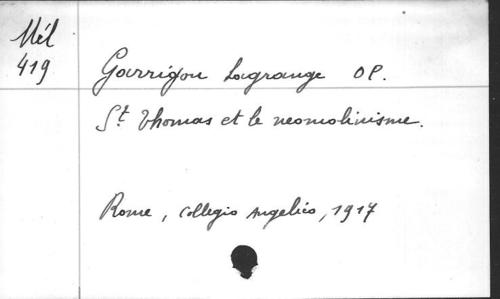 Mél
419
Garrigou Lagrange OP.
St Thomas et le neomolinisme.
Rome, Collegio Angelico, 1917